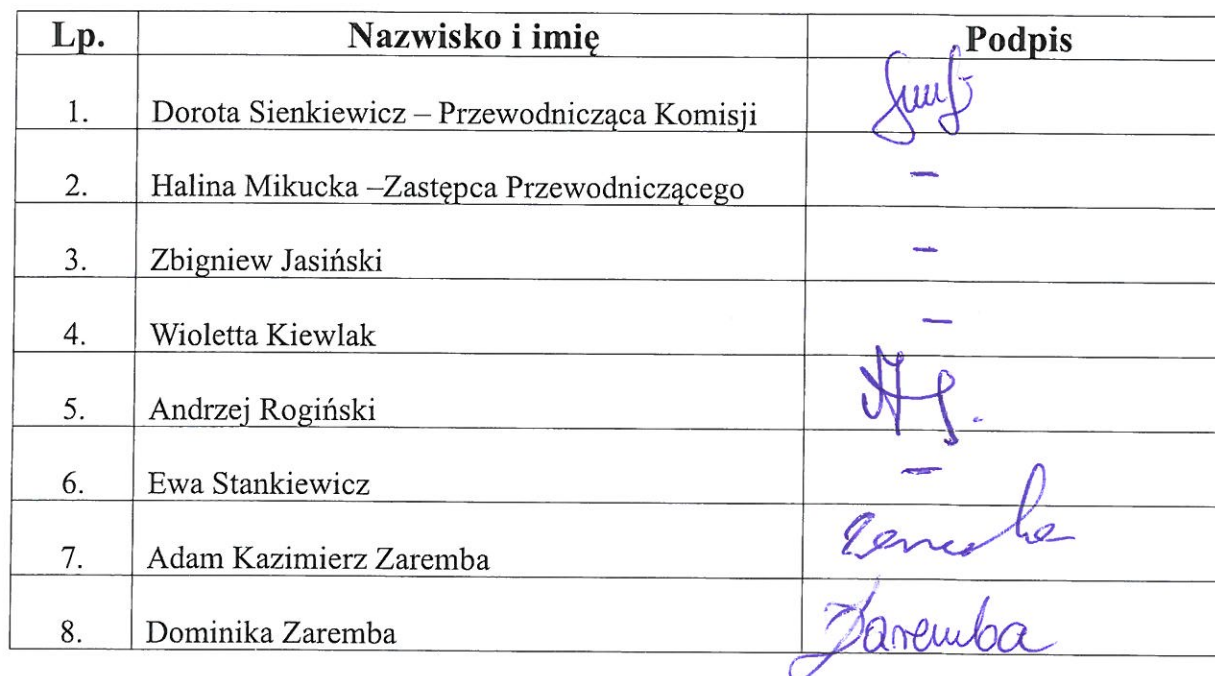 Lp. Nazwisko i imię Podpis
1. Dorota Sienkiewicz – Przewodnicząca Komisji
2. Halina Mikucka –Zastępca Przewodniczącego –
3. Zbigniew Jasiński –
4. Wioletta Kiewlak –
5. Andrzej Rogiński
6. Ewa Stankiewicz –
7. Adam Kazimierz Zaremba
8. Dominika Zaremba Zaremba